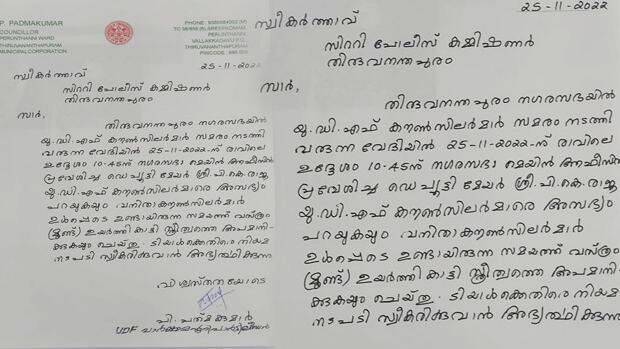 P. PADMAKUMAR
COUNCILLOR
PERUNTHANNI WARD
THIRUVANANTHAPURAM
MUNICIPAL CORPORATION
PERUNTHANNI
THIRUVANANTHAPURAM
25-11-2022
സ്വീകർത്താവ്
സിററി പോലീസ് കമ്മിഷണർ
തിരുവനന്തപുരം
സാർ,
തിരുവനന്തപുരം നഗരസഭയിൽ
യു.ഡി.എഫ് കൗൺസിലർമാർ സമരം നടത്തി
വന്ന വേദിയിൽ 25-11-2022-ന് രാവിലെ
ഉദ്ദേശം 10-45ന് നഗരസഭാ മെയിൻ ഓഫീസിൽ
പ്രവേശിച്ച ഡെപ്യൂട്ടി മേയർ ശ്രീ.പി.കെ.രാജു
യു.ഡി.എഫ് കൗൺസിലർമാരെ അസഭ്യം
പറയുകയും വനിതാ കൗൺസിലർമാർ
ഉൾപ്പെടെ ഉണ്ടായിരുന്ന സമയത്ത് വസ്ത്രം
(മുണ്ട്) ഉയർത്തി കാട്ടി സ്ത്രീത്വത്തെ അപമാനി-
ക്കുകയും ചെയ്തു. ടിയാൾക്കെതിരെ നിയമ
നടപടി സ്വീകരിക്കുവാൻ അഭ്യർത്ഥിക്കുന്നു
വിശ്വസ്തതയോടെ
പി. പത്മകുമാർ
UDF
25-11-2022
സ്വീകർത്താവ്
സിററി പോലീസ് കമ്മിഷണർ
തിരുവനന്തപുരം
സാർ,
തിരുവനന്തപുരം നഗരസഭയിൽ
യു.ഡി.എഫ് കൗൺസിലർമാർ സമരം നടത്തി
വന്ന വേദിയിൽ 25-11-2022-ന് രാവിലെ
ഉദ്ദേശം 10-45ന് നഗരസഭാ മെയിൻ ഓഫീസിൽ
പ്രവേശിച്ച ഡെപ്യൂട്ടി മേയർ ശ്രീ.പി.കെ.രാജു
യു.ഡി.എഫ് കൗൺസിലർമാരെ അസഭ്യം
പറയുകയും വനിതാ കൗൺസിലർമാർ
ഉൾപ്പെടെ ഉണ്ടായിരുന്ന സമയത്ത് വസ്ത്രം
(മുണ്ട്) ഉയർത്തി കാട്ടി സ്ത്രീത്വത്തെ അപമാനി-
ക്കുകയും ചെയ്തു. ടിയാൾക്കെതിരെ നിയമ
നടപടി സ്വീകരിക്കുവാൻ അഭ്യർത്ഥിക്കുന്നു